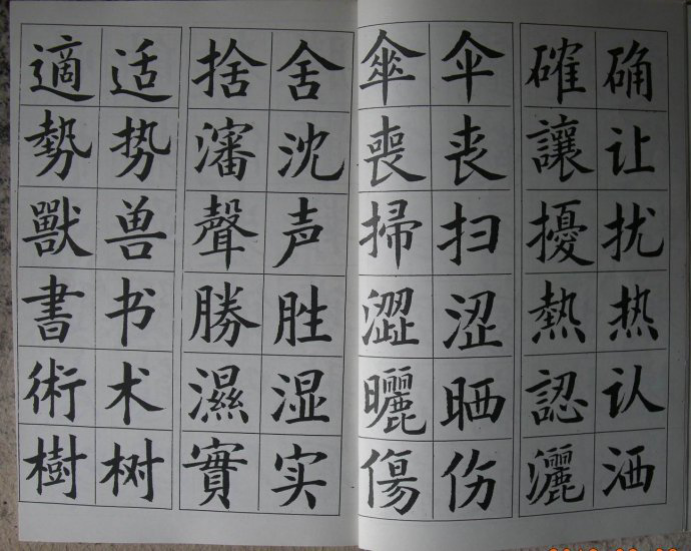 确让扰热认洒
確讓擾熱認灑
伞丧扫涩晒伤
傘喪掃澀曬傷
舍沈声胜湿实
捨瀋聲勝濕實
适势兽书术树
適勢獸書術樹